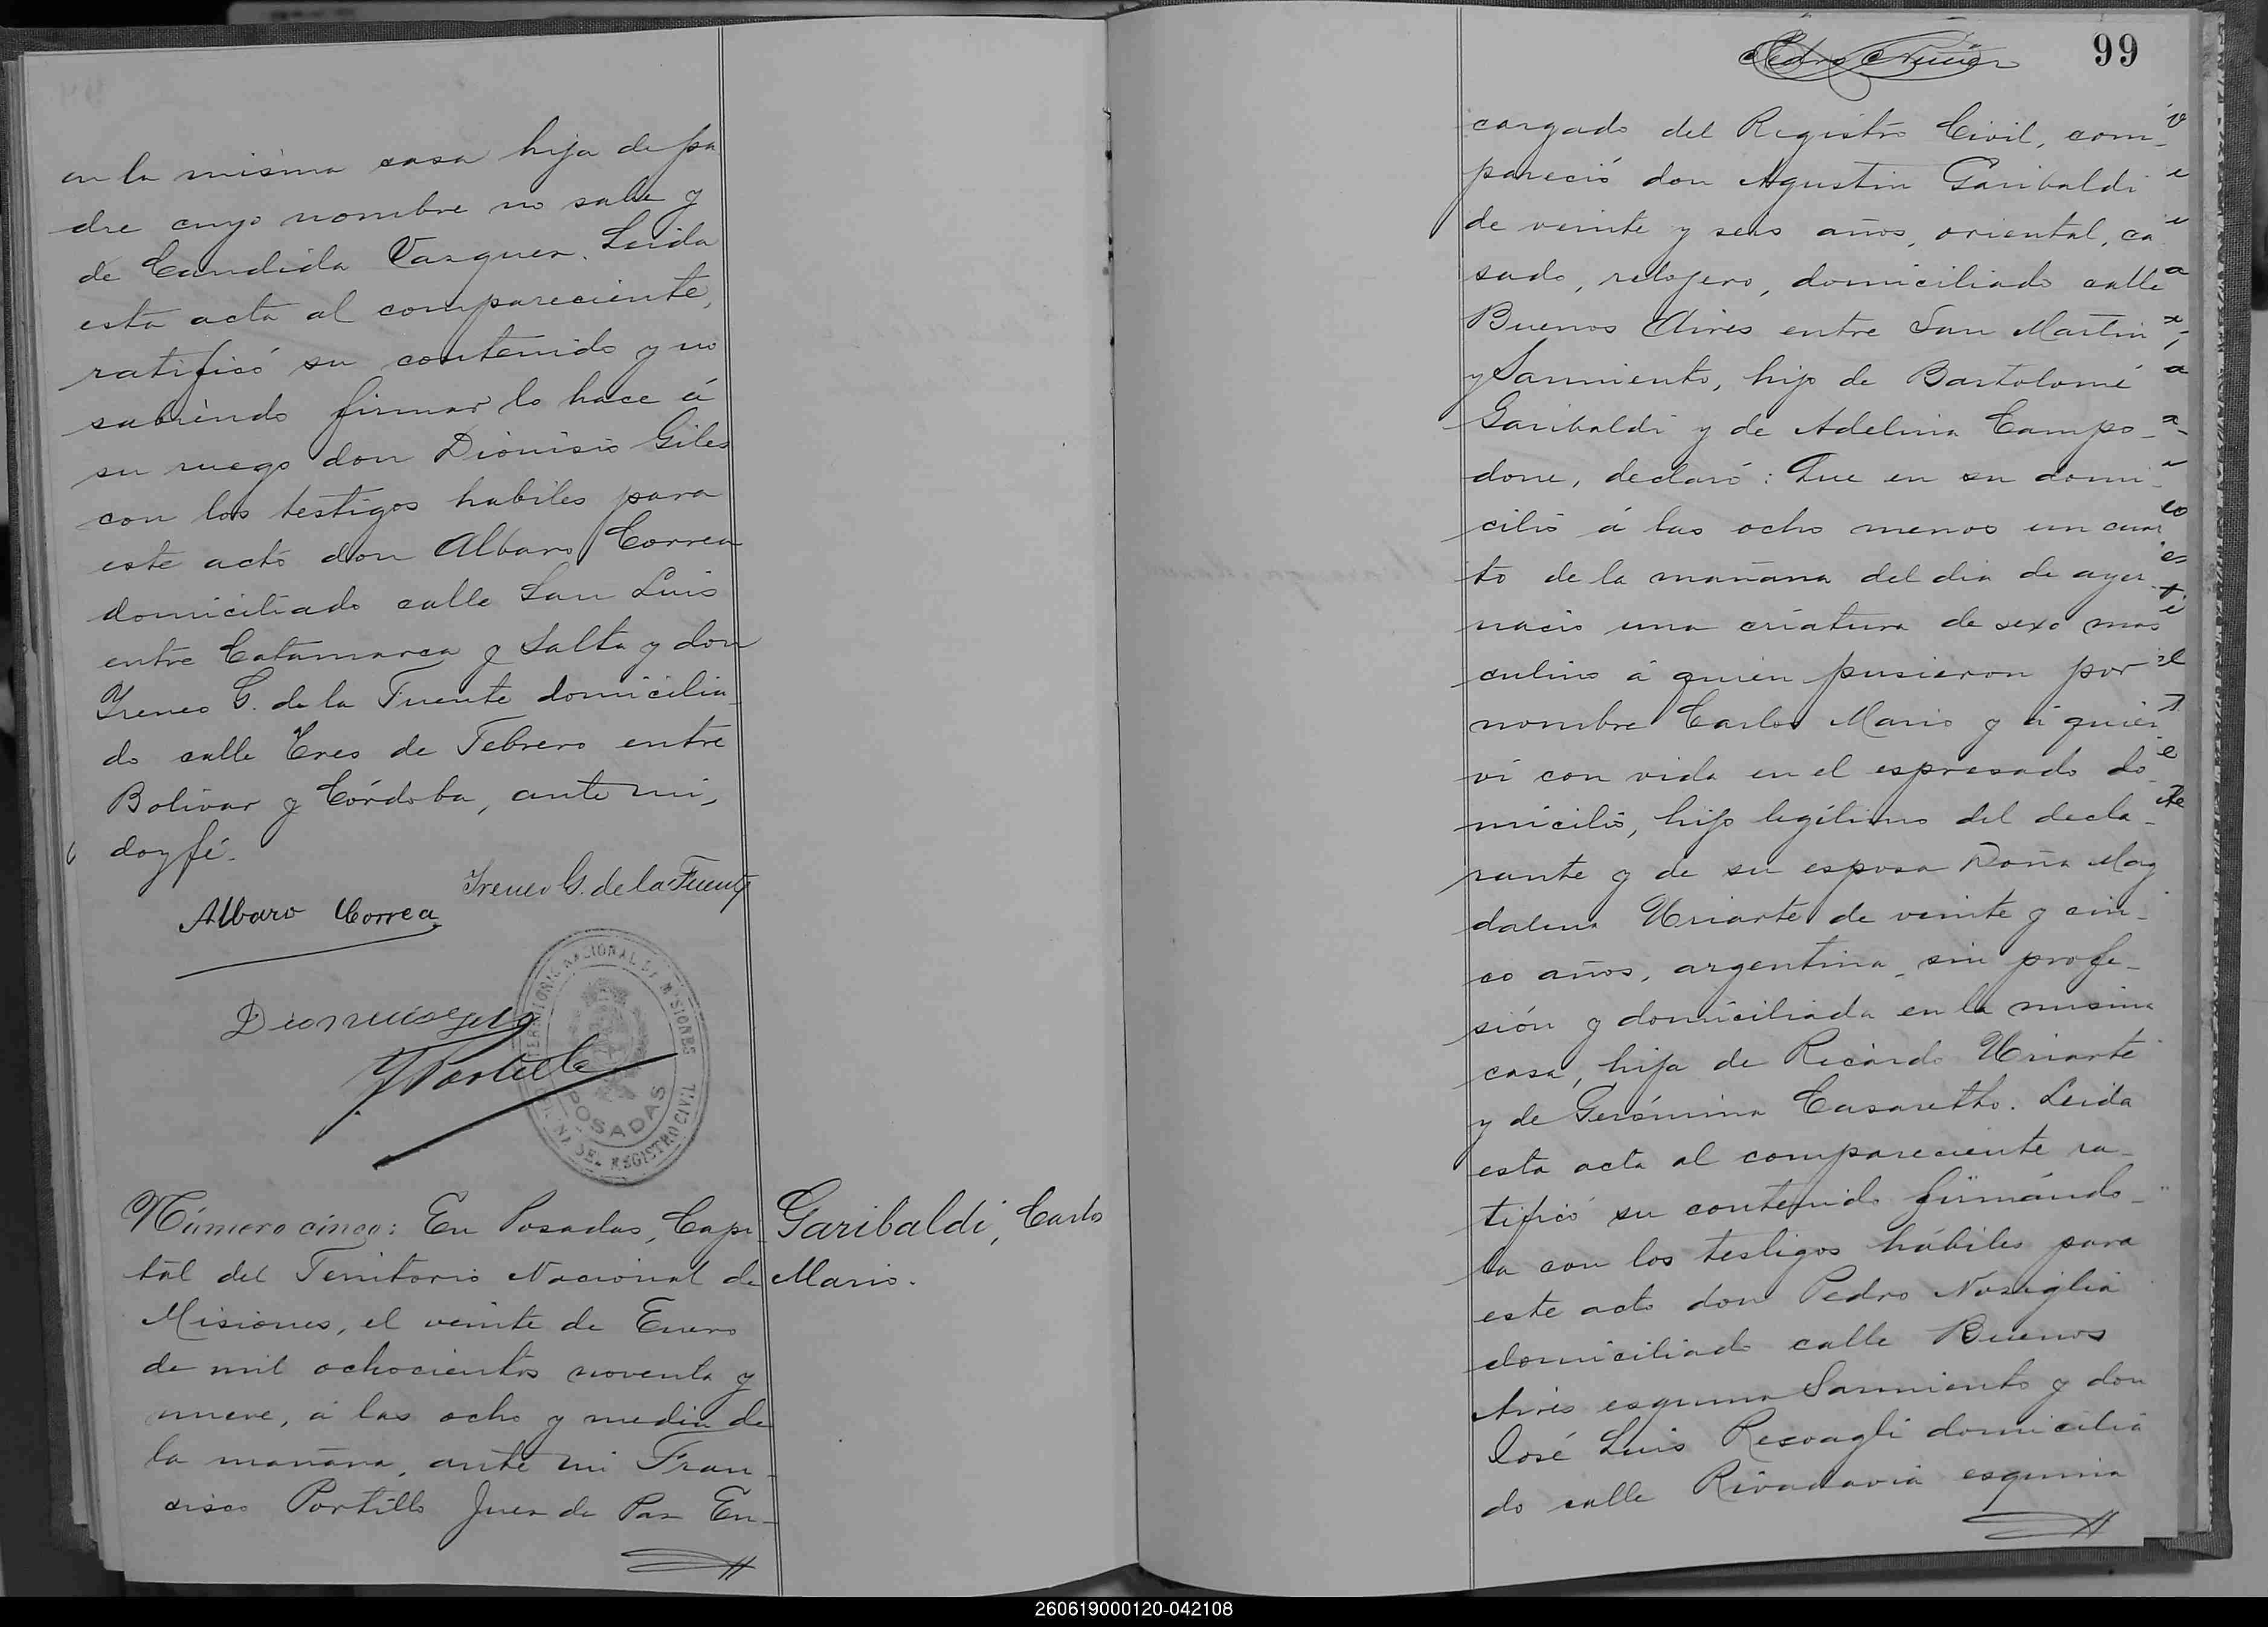 en la misma casa hija de pa
dre cuyo nombre no sabe y
de Candida Vazquez. Leida
esta acta al compareciente,
ratificó su contenido y no
sabiendo firmar lo hace á
su ruego don Dionisio Giles
con los testigos habiles para
este acto don Albaro Correa
domiciliado calle San Luis
entre Catamarca y Salta y don
Yreneo G. de la Fuente domicilia-
do calle Tres de Febrero entre
Bolivar y Córdoba, ante mi,
doy fé.
Ireneo G. de la Fuente
Albaro Correa
Dionicio Gils
F Portillo
TERRITORIO NACIONAL DE MISIONES
POSADAS
OFICINA DEL REGISTRO CIVIL
Número cinco: En Posadas, Capi-
tal del Territorio Nacional de
Misiones, el veinte de Enero
de mil ochocientos noventa y
nueve, á las ocho y media de
la mañana, ante mi Fran-
cisco Portillo Juez de Paz En-
Garibaldi, Carlos
Mario.
Pedro Nuñez
99
cargado del Registro Civil, com-
pareció don Agustin Garibaldi
de veinte y seis años, oriental, ca
sado, relojero, domiciliado calle
Buenos Aires entre San Martin
y Sarmiento, hijo de Bartolomé
Garibaldi y de Adelina Campo-
done, declaró: Que en su domi-
cilio á las ocho menos un cuar
to de la mañana del dia de ayer
nació una criatura de sexo mas
culino á quien pusieron por
nombre Carlos Mario y á quien
vi con vida en el espresado do-
micilio, hijo legítimo del decla-
rante y de su esposa Doña Mag
dalena Uriarte de veinte y cin-
co años, argentina, sin profe-
sión y domiciliada en la misma
casa, hija de Ricardo Uriarte
y de Gerónima Casaretto. Leida
esta acta al compareciente ra-
tificó su contenido firmándo-
la con los testigos hábiles para
este acto don Pedro Nosiglia
domiciliado calle Buenos
Aires esquina Sarmiento y don
José Luis Resoagli domicilia
do calle Rivadavia esquina
260619000120-042108